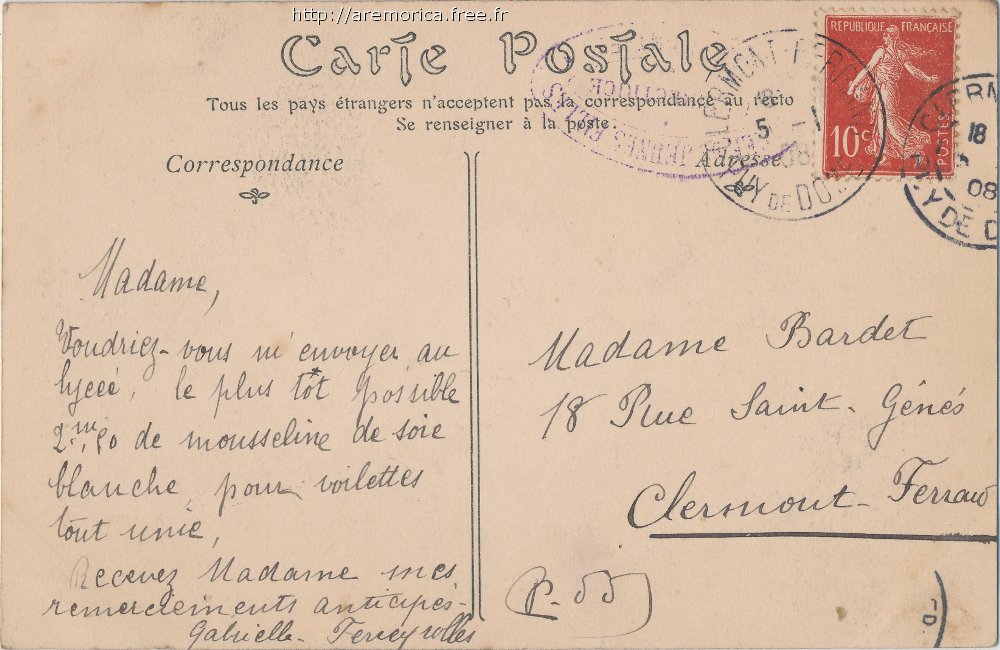 http://aremorica.free.fr
Carte Postale
Tous les pays étrangers n'acceptent pas la correspondance au recto
Se renseigner à la poste.
Correspondance
Adresse
RÉPUBLIQUE FRANÇAISE
10c
POSTES
CLERMONT-FERRAND
5 - 1
08
PUY DE DÔME
CLERM
18
08
PUY DE D
JEUNES FILLES
Madame,
Voudriez-vous m'envoyer au
lycée, le plus tôt possible
2m,50 de mousseline de soie
blanche, pour voilettes
tout unie,
Recevez Madame mes
remerciements anticipés-
Gabrielle Ferreyrolles
Madame Bardet
18 Rue Saint-Génés
Clermont-Ferrand